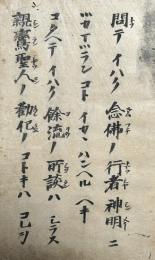 問テイハク念佛ノ行者神明ニ
ツカフマツランコトイカンハンヘルヘキ
コタヘテイハク餘流ノ所談ハシラス
親鸞聖人ノ勸化ノコトキハコレヲ